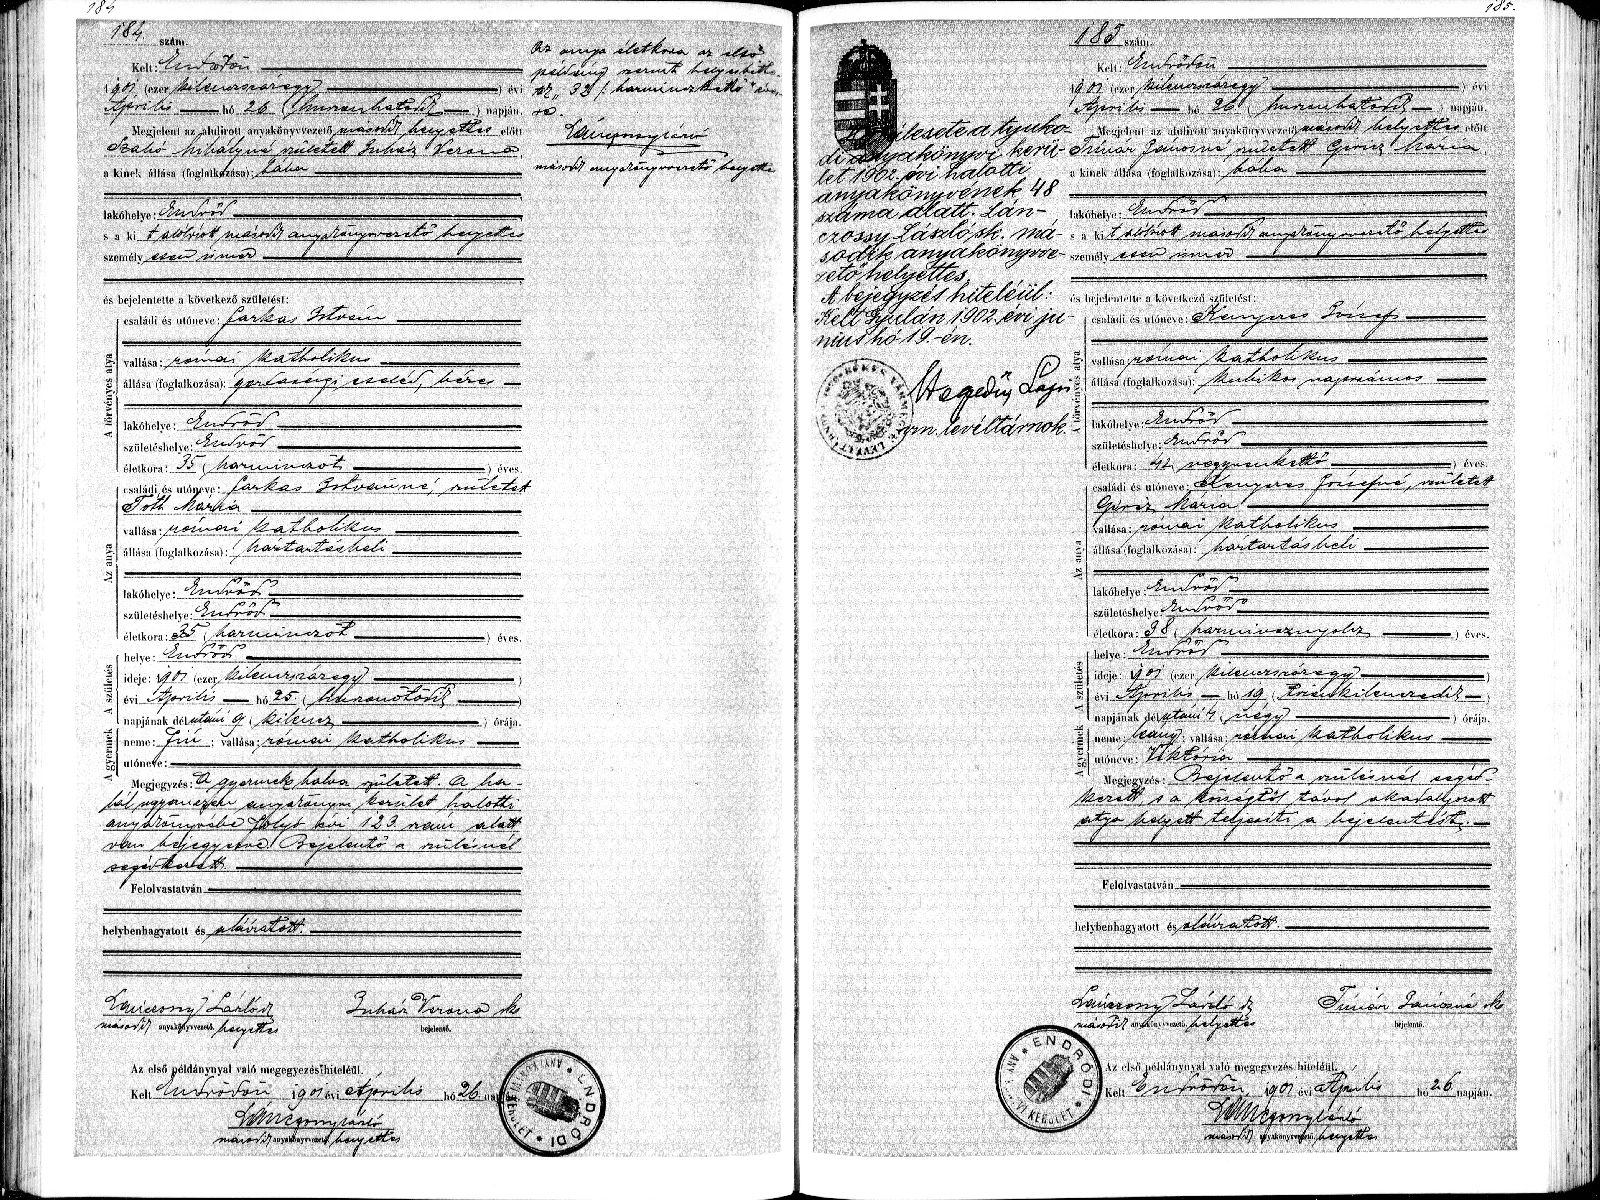 184
184 szám.
Kelt: Endrődön
1901 (ezer kilenczszázegy) évi
Április hó 26 (huszonhatodik) napján.
Megjelent az alulirott anyakönyvvezető második helyettes előtt
Szabó Mihályné született Juhász Verona
a kinek állása (foglalkozása): bába
lakóhelye: Endrőd
s a kit alólirott második anyakönyvvezető helyettes
személyesen ismer
és bejelentette a következő születést:
A törvényes atya
családi és utóneve: Farkas István
vallása: római katholikus
állása (foglalkozása): gazdasági cseléd, béres
lakóhelye: Endrőd
születéshelye: Endrőd
életkora: 35 (harminczöt) éves.
Az anya
családi és utóneve: Farkas Istvánné, született
Tóth Mária
vallása: római katholikus
állása (foglalkozása): háztartásbeli
lakóhelye: Endrőd
születéshelye: Endrőd
életkora: 35 (harminczöt) éves.
A születés
helye: Endrőd
ideje: 1901 (ezer kilenczszázegy)
évi Április hó 25 (huszonötödik)
napjának délutáni 9 (kilencz) órája.
A gyermek
neme: fiú; vallása: római katholikus
utóneve:
Megjegyzés: A gyermek halva született. A ha-
lál ugyanezen anyakönyvi kerület halotti
anyakönyvébe folyó évi 123 szám alatt
van bejegyezve. Bejelentő a szülésnél
segédkezett.
Felolvastatván
helybenhagyatott és aláiratott.
Lánczony László sk
második anyakönyvvezető helyettes
Juhász Verona sk
bejelentő.
Az első példánynyal való megegyezés hiteléül.
Kelt Endrődön 1901 évi Április hó 26. napján
második anyakönyvvezető helyettes
ENDRŐDI
Az anya életkora az első
példány szerint helyesbitte-
második anyakönyvvezető helyettes
185.
185 szám.
di anyakönyvi kerü-
let 1902. évi halotti
anyakönyvének 48
száma alatt. Lán-
czossy László sk. má-
sodik anyakönyvve-
zető helyettes.
A bejegyzés hiteléül:
Kelt Gyulán 1902. évi ju-
nius hó 19-én.
Hegedűs Lajos
vm. levéltárnok.
Kelt: Endrődön
1901 (ezer kilenczszázegy) évi
Április hó 26 (huszonhatodik) napján.
Megjelent az alulirott anyakönyvvezető második helyettes előtt
Timár Jánosné született Giricz Mária
a kinek állása (foglalkozása): bába
lakóhelye: Endrőd
s a kit alólirott második anyakönyvvezető helyettes
személyesen ismer
és bejelentette a következő születést:
A törvényes atya
családi és utóneve: Kenyeres József
vallása: római katholikus
állása (foglalkozása): kubikos, napszámos
lakóhelye: Endrőd
születéshelye: Endrőd
életkora: 42 negyvenkettő) éves.
Az anya
családi és utóneve: Kenyeres Józsefné, született
Giricz Mária
vallása: római katholikus
állása (foglalkozása): háztartásbeli
lakóhelye: Endrőd
születéshelye: Endrőd
életkora: 38 (harmincznyolcz) éves.
A születés
helye: Endrőd
ideje: 1901 (ezer kilenczszázegy)
évi Április hó 19 (tizenkilenczedik)
napjának délutáni 4 (négy) órája.
A gyermek
neme: leány; vallása: római katholikus
utóneve: Viktória
Megjegyzés: Bejelentő a szülésnél segéd-
kezett s a községtől távol akadályozott
atya helyett teljesiti a bejelentést.
Felolvastatván
helybenhagyatott és aláiratott.
Lánczony László sk
második anyakönyvvezető, helyettes
Timár Jánosné sk
bejelentő.
Az első példánynyal való megegyezés hiteléül.
Kelt Endrődön 1901 évi Április hó 26 napján.
második anyakönyvvezető helyettes
ENDRŐDI